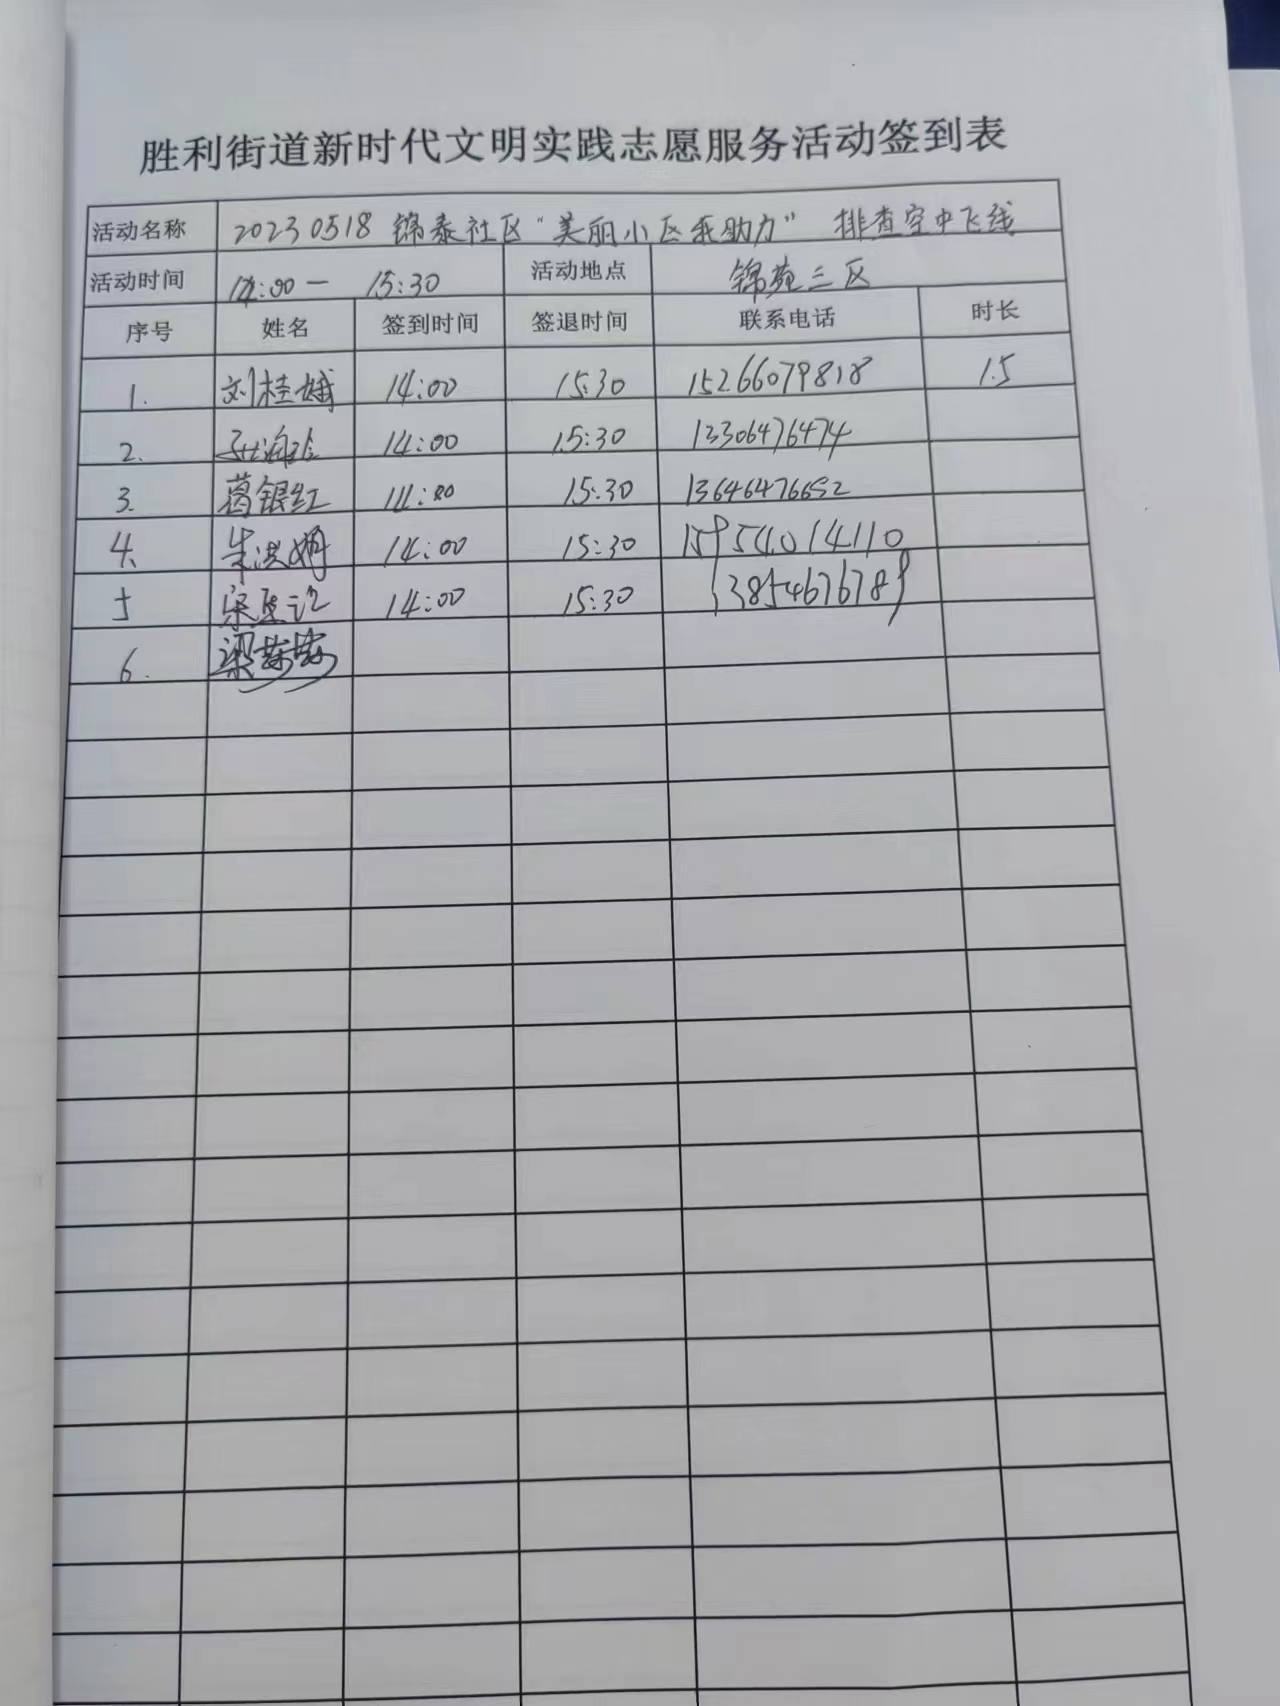 胜利街道新时代文明实践志愿服务活动签到表
活动名称 20230518 锦泰社区“美丽小区我助力” 排查空中飞线
活动时间 14:00— 15:30 活动地点 锦苑三区
序号 姓名 签到时间 签退时间 联系电话 时长
1. 刘桂娥 14:00 15:30 15266079818 1.5
2. 14:00 15:30 13306476474
3. 葛银红 14:00 15:30 13646476652
4. 朱洪娟 14:00 15:30 15954014110
5 14:00 15:30 13854676789
6. 梁